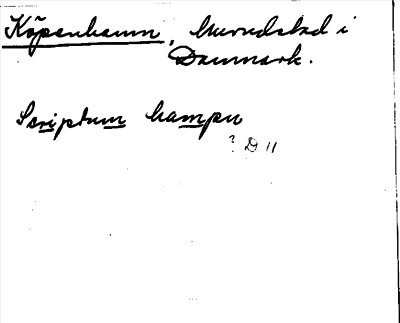 Köpenhamn, huvudstad i
Danmark.
Scriptum hampn
? D 11